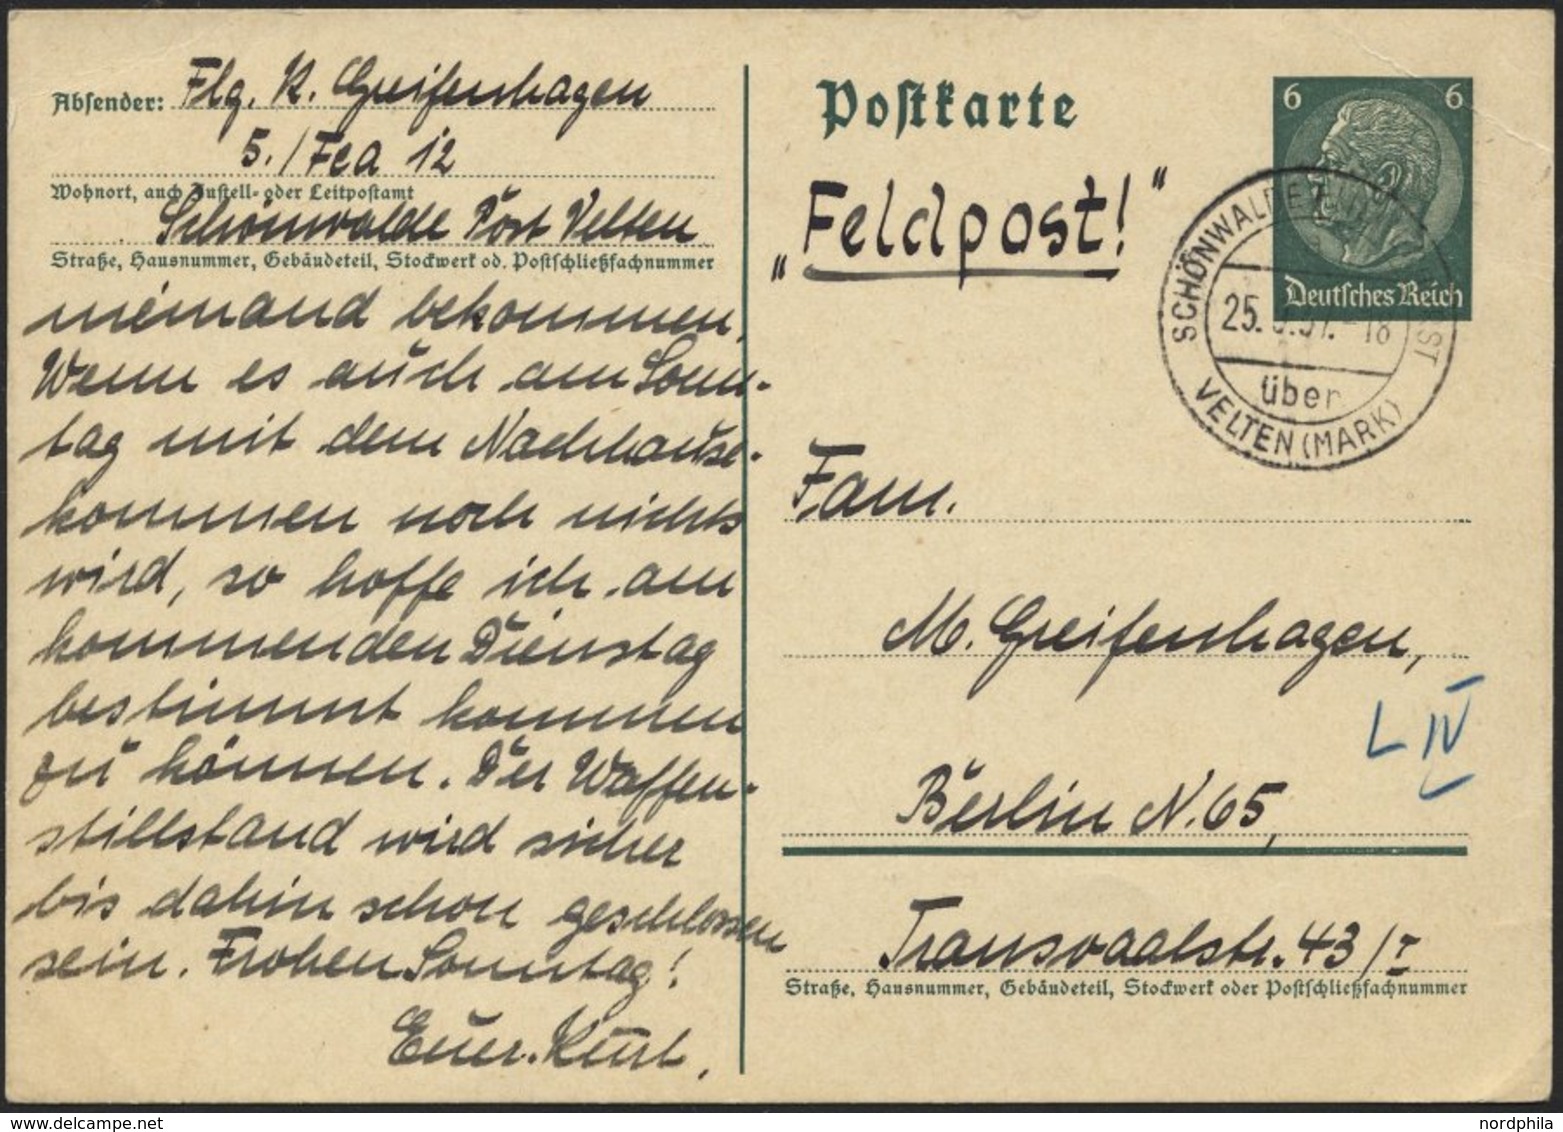 Absender: Flg. K. Greifenhagen
5./Fea 12
Wohnort, auch Zustell- oder Leitpostamt
Schönwalde Post Velten
Straße, Hausnummer, Gebäudeteil, Stockwerk od. Postschließfachnummer
niemand bekommen.
Wenn es auch am Sonn-
tag mit dem Nachhause-
kommen noch nichts
wird, so hoffe ich am
kommenden Dienstag
bestimmt kommen
zu können. Der Waffen-
stillstand wird sicher
bis dahin schon geschlossen
sein. Frohen Sonntag!
Euer Kurt.
Postkarte
„Feldpost!“
6 6
Deutsches Reich
SCHÖNWALDE
25.
18
über
VELTEN (MARK)
Fam.
M. Greifenhagen,
L IV
Berlin N. 65,
Transvaalstr. 43/I
Straße, Hausnummer, Gebäudeteil, Stockwerk oder Postschließfachnummer
nordphila